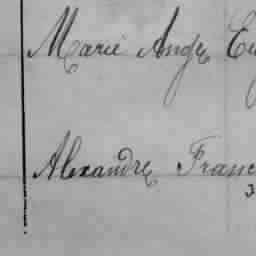 Marie Ange
Alexandre Franc
3